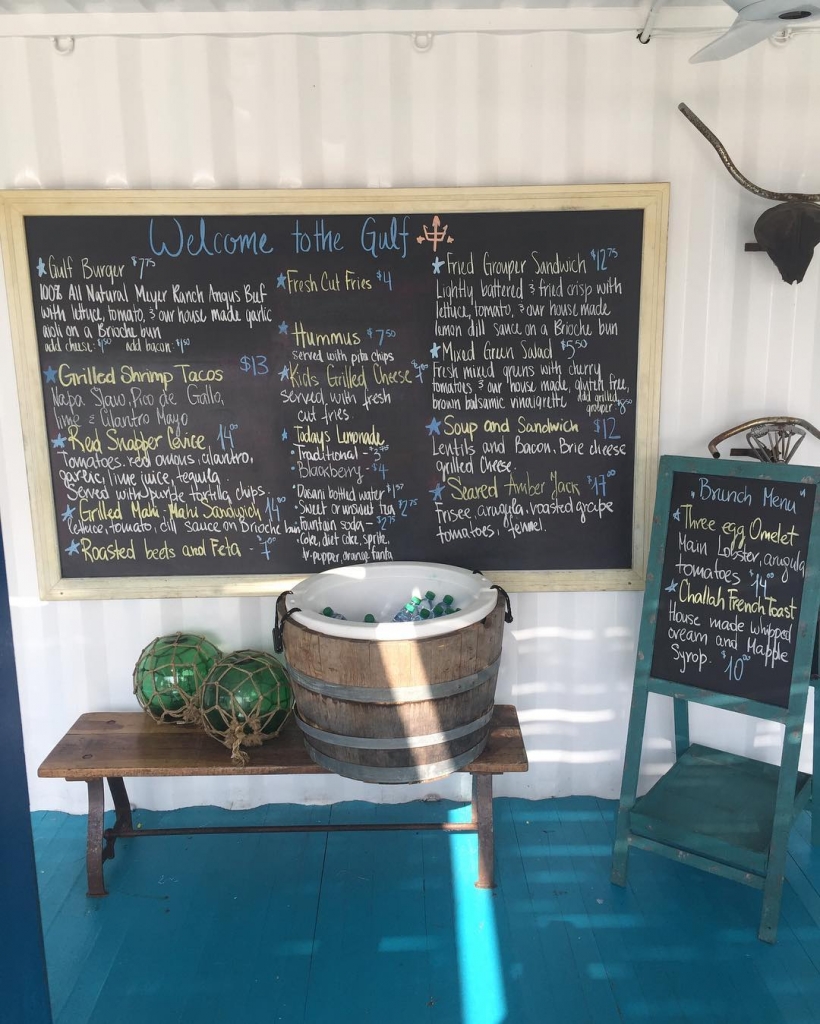 Welcome to the Gulf
Gulf Burger $7.75
100% All Natural Meyer Ranch Angus Beef
with lettuce, tomato, & our house made garlic
aioli on a Brioche bun
add cheese: $1.50 add bacon: $1.50
Grilled Shrimp Tacos $13
Napa Slaw, Pico de Gallo,
lime & Cilantro Mayo
Red Snapper 14
Tomatoes, red onions, cilantro,
garlic, lime juice, tequila.
Served with purple tortilla chips.
Grilled Mahi-Mahi Sandwich 14
lettuce, tomato, dill sauce on Brioche bun
Roasted beets and Feta - $7
Fresh Cut Fries $4
Hummus $7.50
served with pita chips
Kids Grilled Cheese
served with fresh
cut fries.
Today's Lemonade
Traditional -
Blackberry - $4
Dasani bottled water
Sweet or unsweet tea
Fountain soda - $2.75
Coke, diet coke, sprite,
dr. pepper, orange fanta
Fried Grouper Sandwich $12.75
Lightly battered & fried crisp with
lettuce, tomato, & our house made
lemon dill sauce on a Brioche bun
Mixed Green Salad $5.50
Fresh mixed greens with cherry
tomatoes & our house made, gluten free,
brown balsamic vinaigrette add grilled
grouper
Soup and Sandwich $12
Lentils and Bacon, Brie cheese
grilled Cheese.
Seared Amber Jack $17
Frisee, arugula, roasted grape
tomatoes, fennel.
"Brunch Menu"
Three egg Omelet
Main Lobster, arugula
tomatoes $14
Challah French Toast
House made whipped
cream and Mapple
Syrop. $10